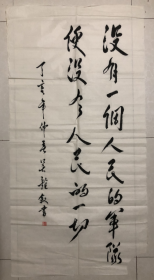 沒有一個人民的軍隊
便沒有人民的一切
丁亥年仲春吳龍敏書